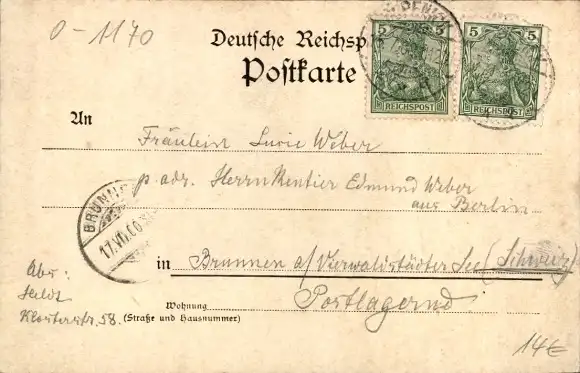 0-1170
Deutsche Reichsp
Postkarte
5 5 5 5
REICHSPOST REICHSPOST
An
Fräulein Lucie Weber
p. adr. Herrn Rentier Edmund Weber
aus Berlin
BRUNNE
17.VII.00
in Brunnen a/ Vierwaldstädter See (Schweiz)
Postlagernd
Abs:
Heldt
Klosterstr. 58.
Wohnung
(Straße und Hausnummer)
14€